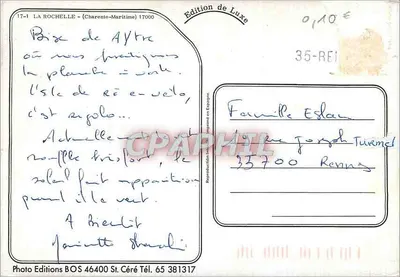 17-1 LA ROCHELLE - (Charente-Maritime) 17000
Edition de Luxe
0,10€
35-RE
Bise de Aytre
où nous pratiquons
la planche à voile.
L'isle de Ré en vélo,
c'est rigolo...
Actuellement
souffle très fort, le
soleil fait apparition
quand il le veut.
A Bientôt
CPAPHIL
Reproduction
Famille
rue Joseph Turmel
35700 Rennes
Photo Editions BOS 46400 St. Céré Tél. 65 381317